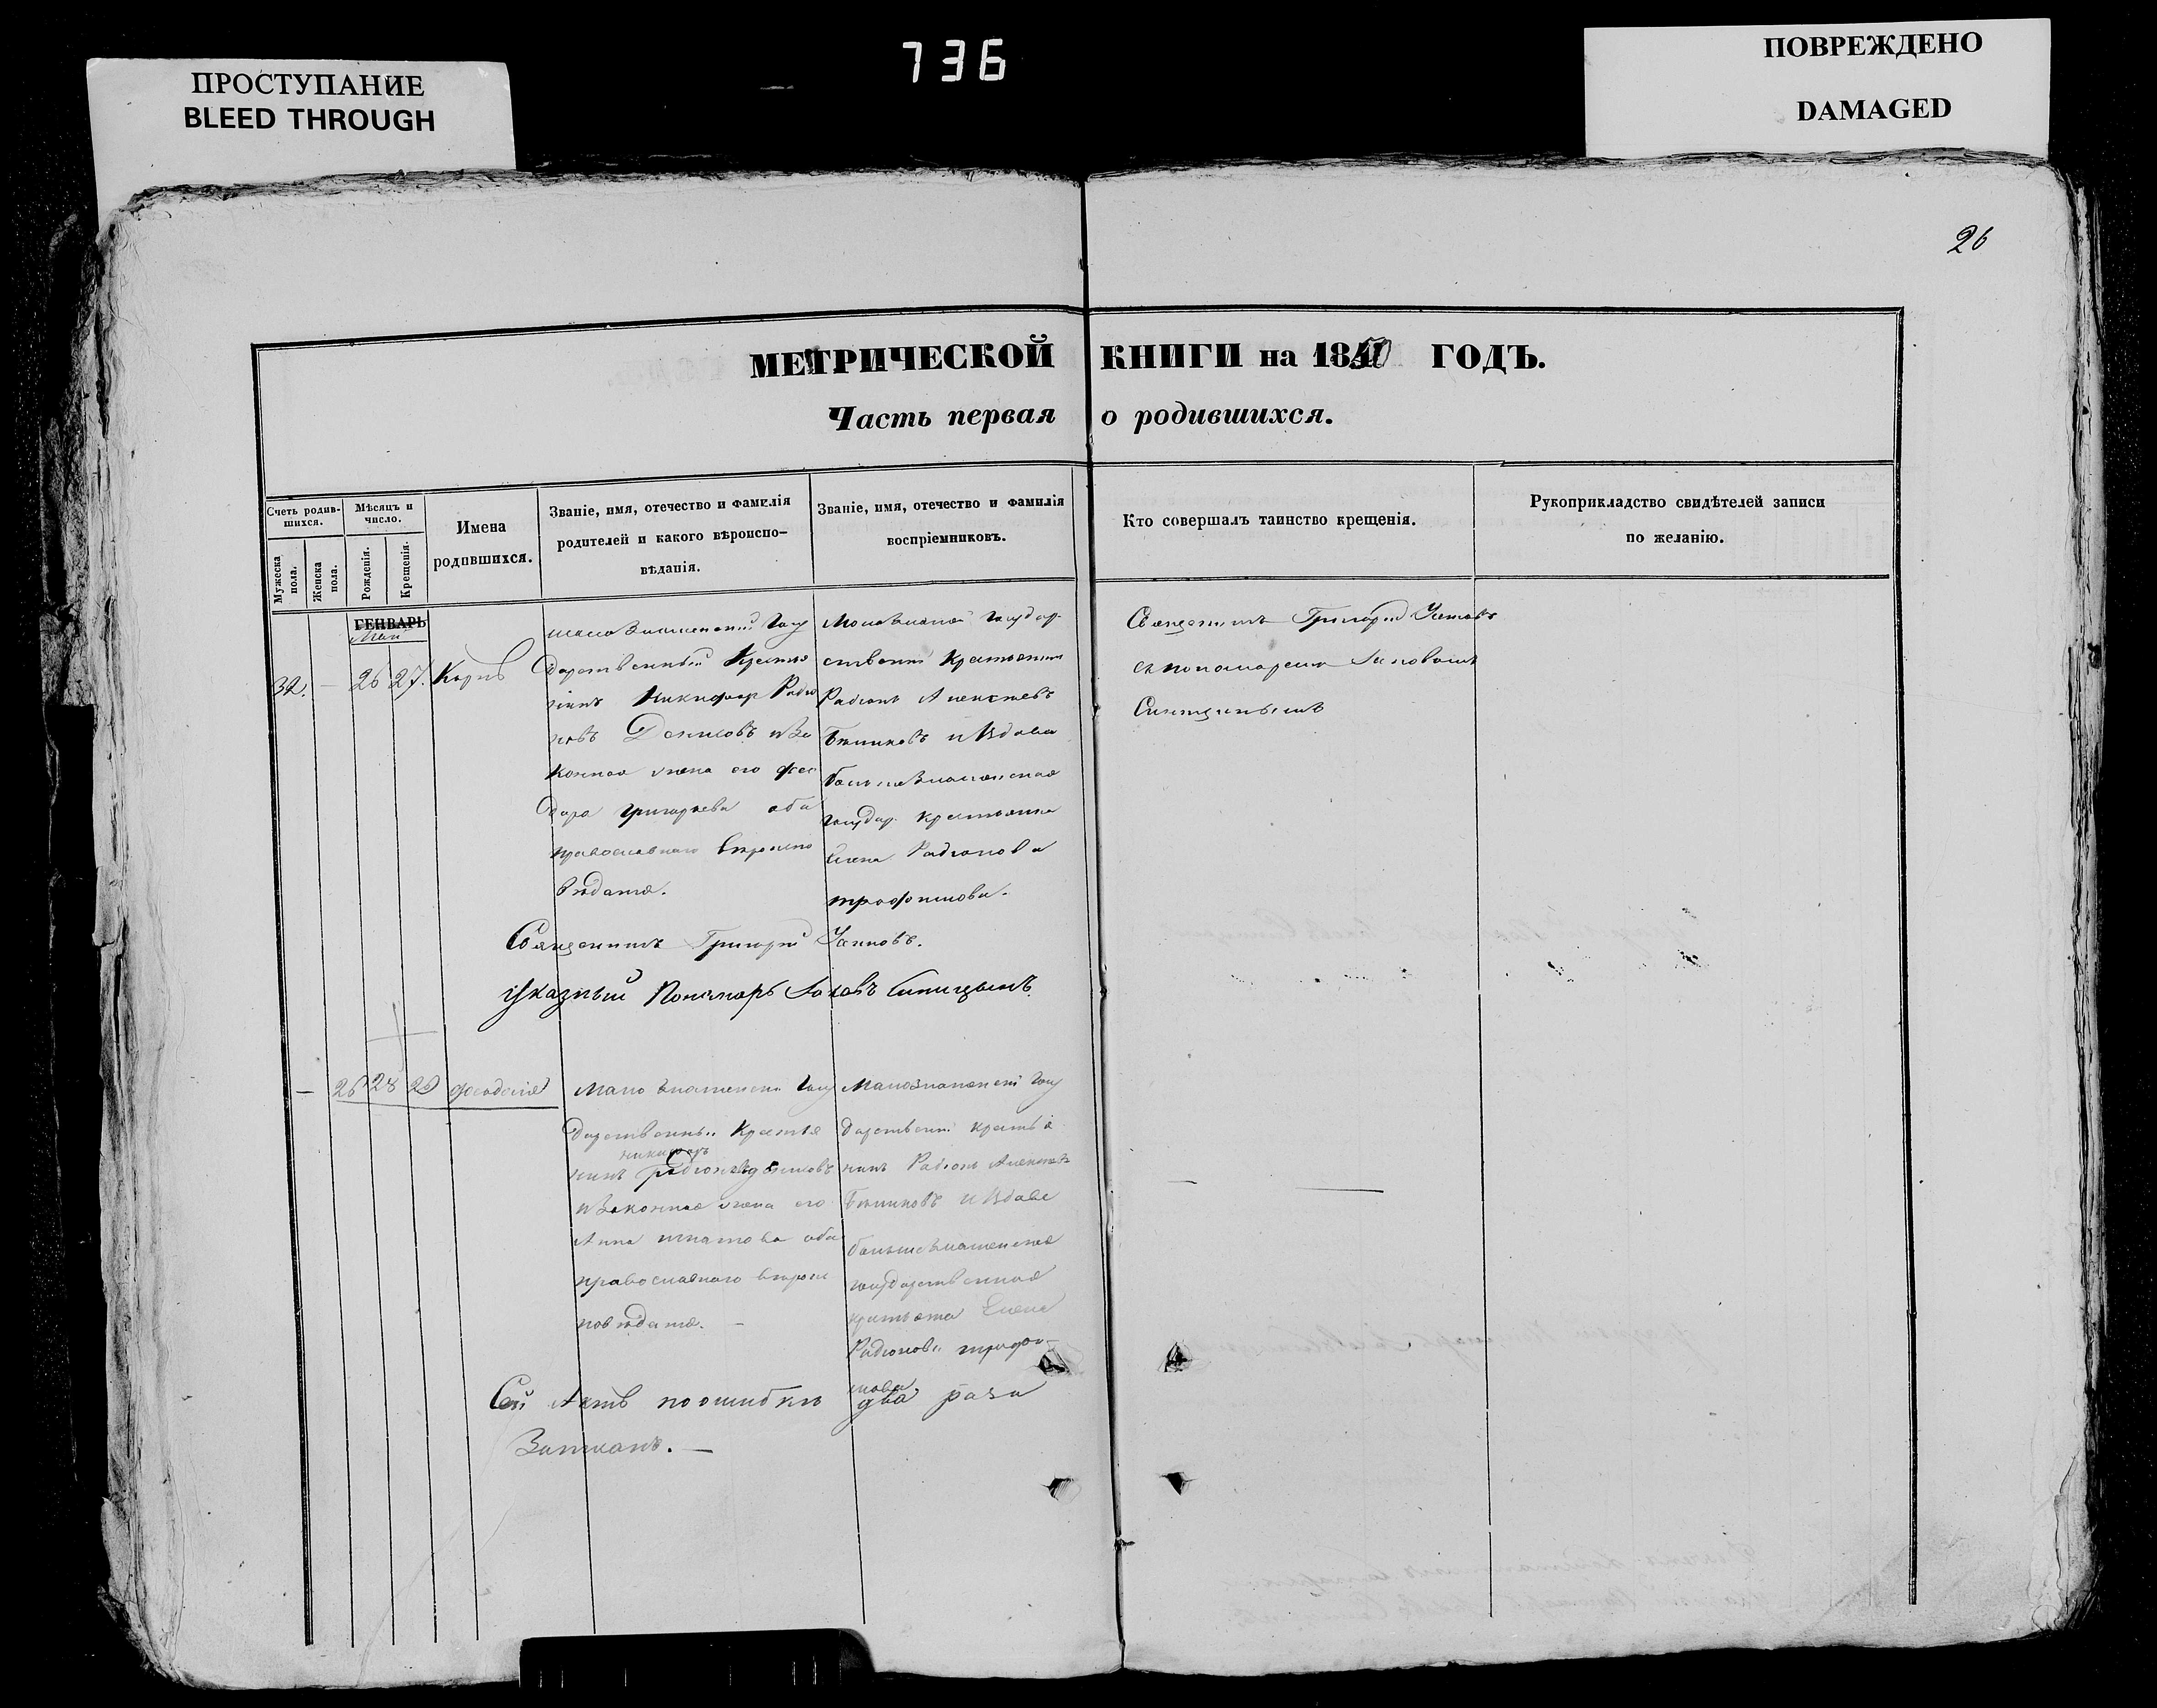 ПРОСТУПАНИЕ
BLEED THROUGH
736
ПОВРЕЖДЕНО
DAMAGED
26
МЕТРИЧЕСКОЙ КНИГИ на 1850 ГОДЪ.
Часть первая о родившихся.
Счетъ родив-
шихся.
Мужеска
пола.
Женска
пола.
Мѣсяцъ и
число.
Рожденія.
Крещенія.
Имена
родившихся.
Званіе, имя, отечество и фамилія
родителей и какого вѣроиспо-
вѣданія.
Званіе, имя, отечество и фамилія
воспріемниковъ.
Кто совершалъ таинство крещенія.
Рукоприкладство свидѣтелей записи
по желанію.
ГЕНВАРЬ
Маи
32. – 26 27.
мало Знаменскій Госу
дарственный Крестья
нинъ Никифор Радіо
новъ Денисовъ и За
конная жена его Фео
дора Григорьева оба
православнаго вѣроиспо
вѣданія.
Малознаменской государ
ственный Крестьянинъ
Радіонъ Алексѣевъ
и Вдова
больше Знаменская
государ. крестьянка
Елена Радіонова
трофимова.
Священникъ Григорій
съ пономаремъ Іаковомъ
Синицынымъ
Священникъ Григорій
Указный Пономарь Іаковъ Синицынъ.
– 26 28 29 Феодосія
Мало Знаменскій Госу
дарственный Крестья
никифоръ
нинъ Радіоновъ денисовъ
и Законная жена его
Анна Игнатова оба
православнаго вѣроис
повѣданія. –
Малознаменскій Госу
дарственный крестья
нинъ Радіонъ Алексѣевъ
и Вдова
большезнаменская
государственная
крестьянка Елена
Радіонова трофи-
мова.
Сей Актъ по ошибкѣ два раза
Записанъ. –